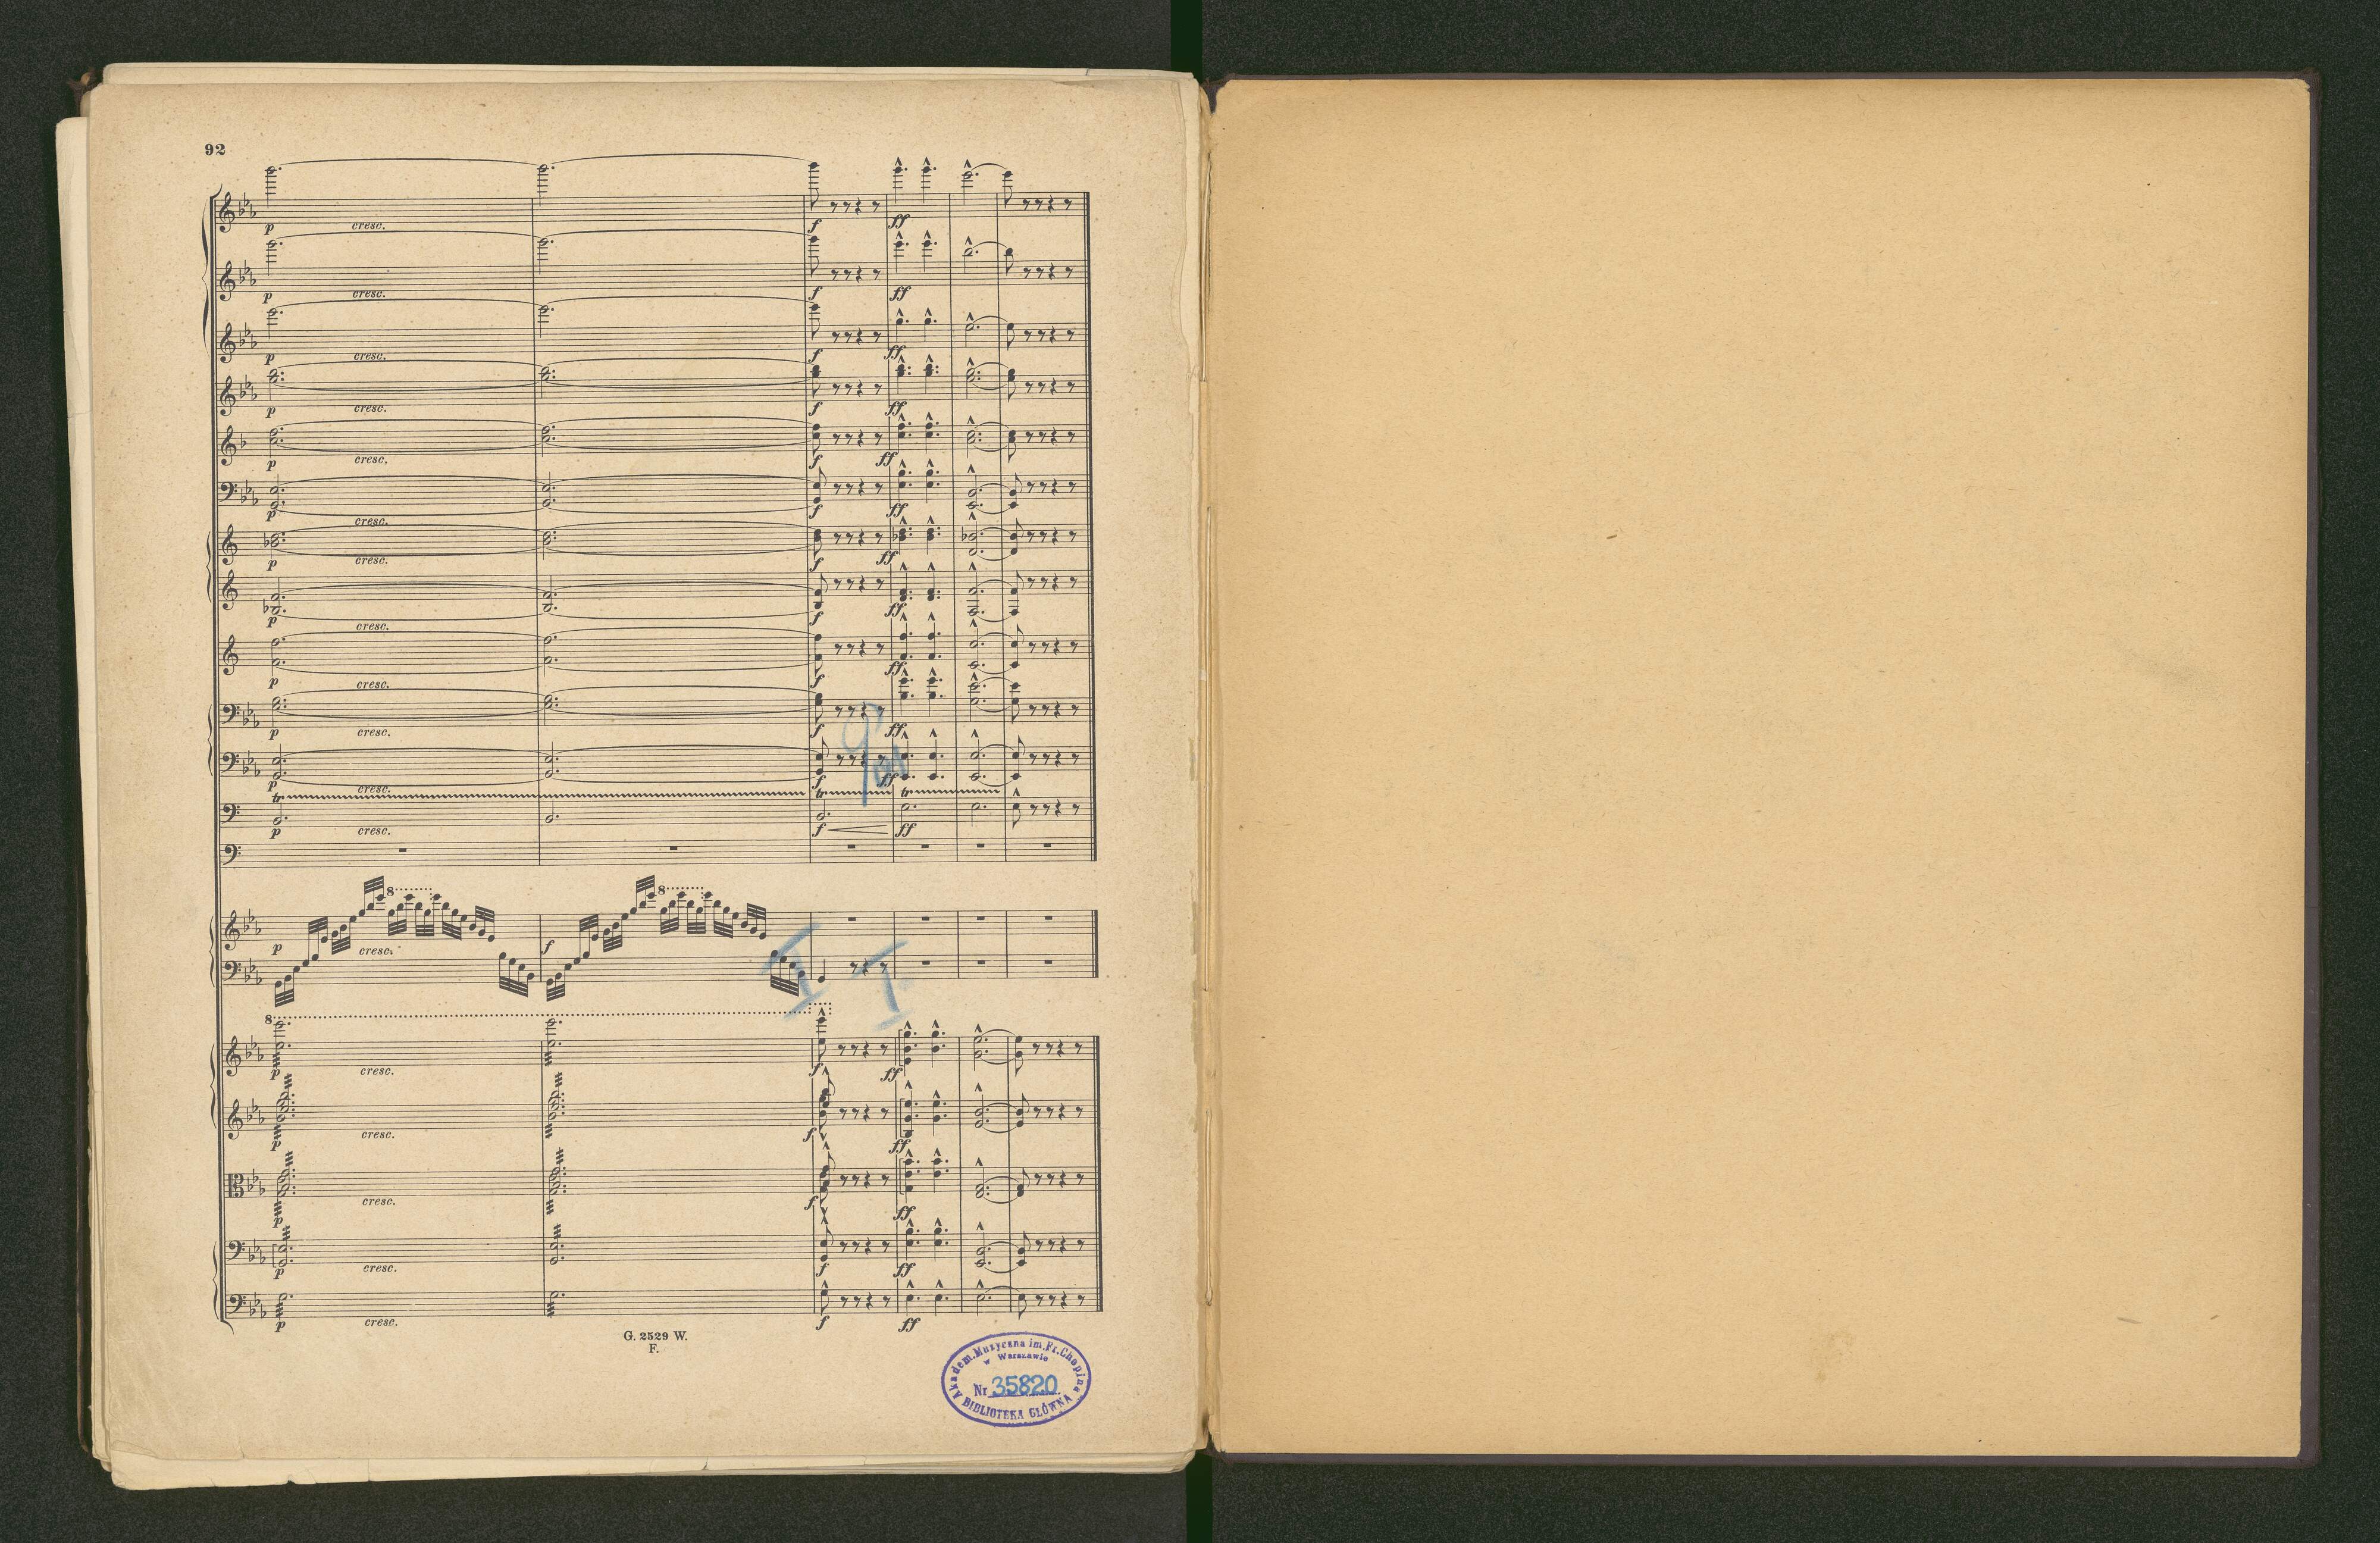 92
p cresc. f ff
p cresc. f ff
p cresc. f ff
p cresc. f ff
p cresc. f ff
p cresc. f ff
p cresc. f ff
p cresc. f ff
p cresc. f ff
p cresc. f ff
p cresc. f ff
tr tr tr
p cresc. f ff
8 8
p cresc. f
8
p cresc. f ff
p cresc. f ff
p cresc. f ff
p cresc. f ff
p cresc. f ff
G. 2529 W.
F.
Akadem. Muzyczna im. Fr. Chopina
w Warszawie
Nr 35820
BIBLIOTEKA GŁÓWNA